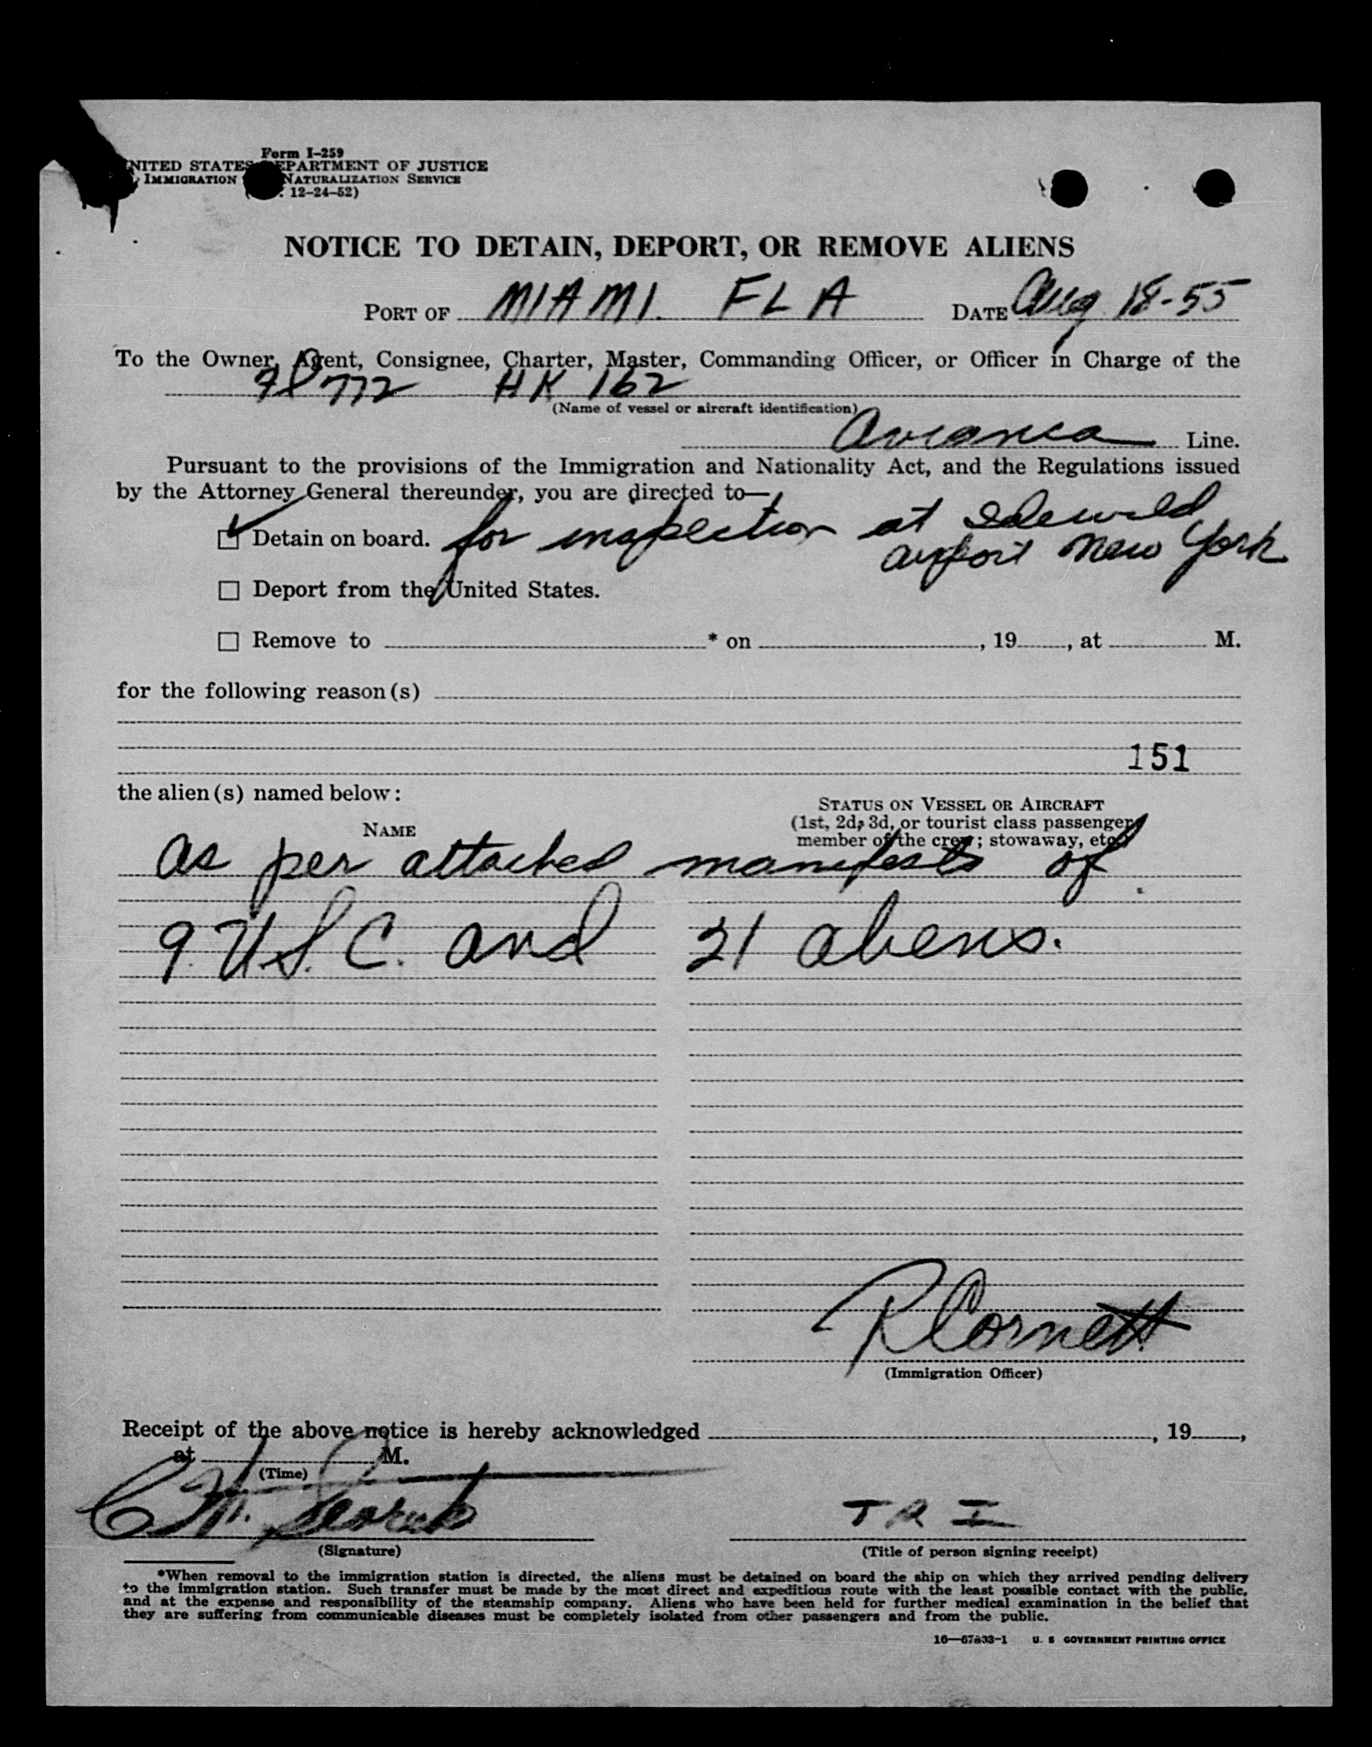 Form I-259
UNITED STATES DEPARTMENT OF JUSTICE
IMMIGRATION NATURALIZATION SERVICE
12-24-52)
NOTICE TO DETAIN, DEPORT, OR REMOVE ALIENS
PORT OF MIAMI. FLA DATE Aug 18-55
To the Owner, Agent, Consignee, Charter, Master, Commanding Officer, or Officer in Charge of the
HK 162
(Name of vessel or aircraft identification)
Avianca Line.
Pursuant to the provisions of the Immigration and Nationality Act, and the Regulations issued
by the Attorney General thereunder, you are directed to—
Detain on board. for inspection at Idewild
airport New York
Deport from the United States.
Remove to * on , 19 , at M.
for the following reason(s)
151
the alien(s) named below:
NAME
STATUS ON VESSEL OR AIRCRAFT
(1st, 2d, 3d, or tourist class passenger,
member of the crew; stowaway, etc.)
as per attached manifests of
9 U.S.C. and 21 aliens.
R Cornett
(Immigration Officer)
Receipt of the above notice is hereby acknowledged , 19 ,
at M.
(Time)
(Signature)
T R I
(Title of person signing receipt)
*When removal to the immigration station is directed, the aliens must be detained on board the ship on which they arrived pending delivery
to the immigration station. Such transfer must be made by the most direct and expeditious route with the least possible contact with the public,
and at the expense and responsibility of the steamship company. Aliens who have been held for further medical examination in the belief that
they are suffering from communicable diseases must be completely isolated from other passengers and from the public.
16—67833-1 U. S GOVERNMENT PRINTING OFFICE